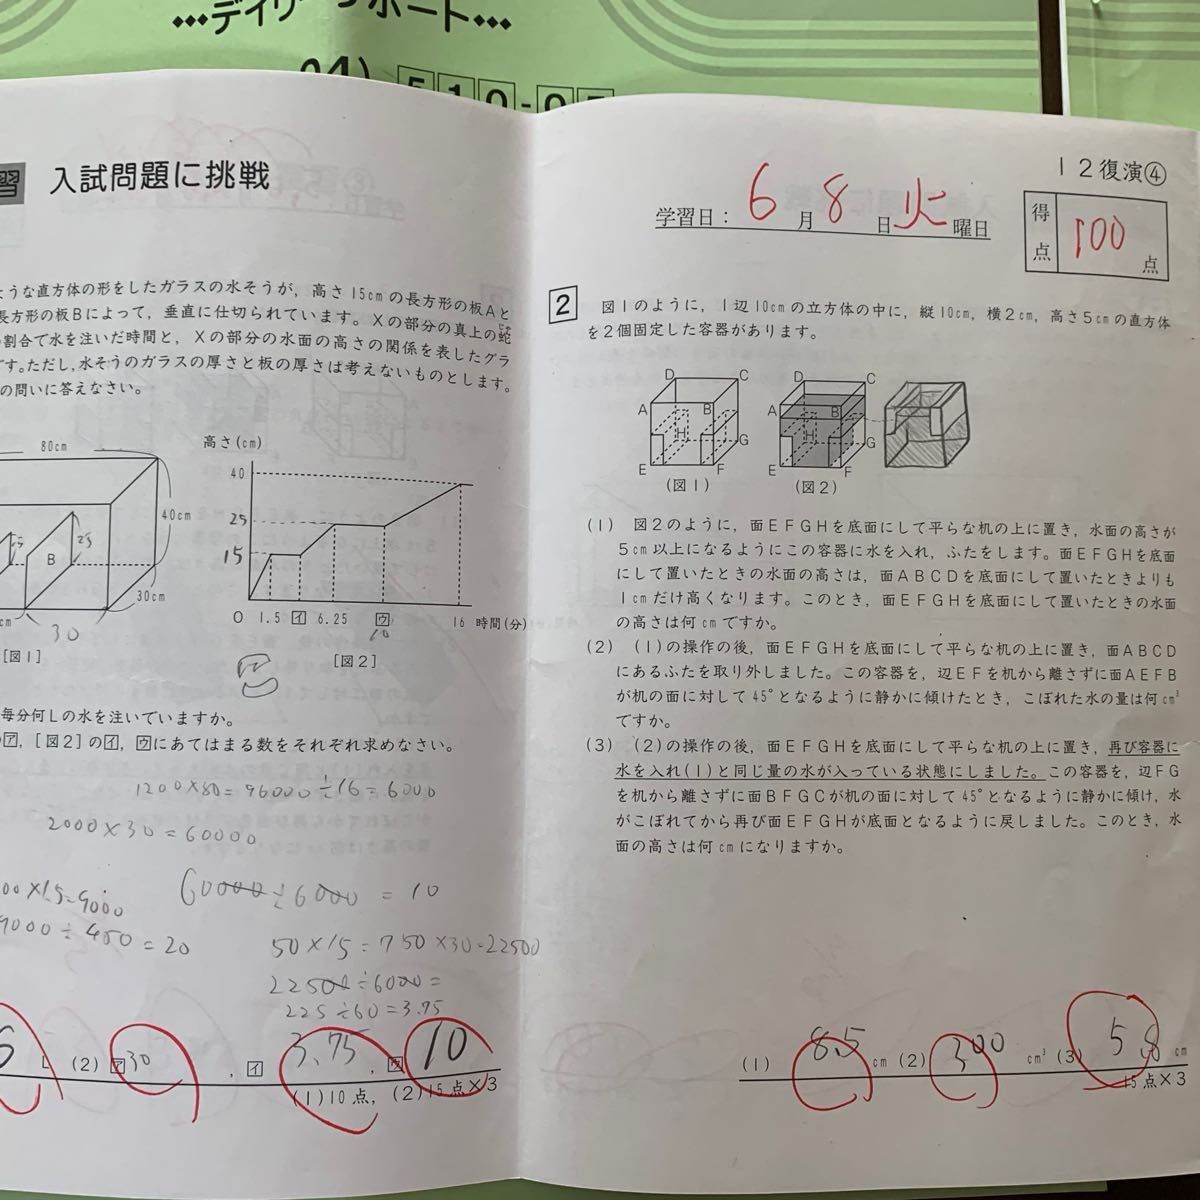 …デイリーサポート…
510-0
習 入試問題に挑戦
ような直方体の形をしたガラスの水そうが，高さ15cmの長方形の板Aと
長方形の板Bによって，垂直に仕切られています。Xの部分の真上の蛇
割合で水を注いだ時間と，Xの部分の水面の高さの関係を表したグラ
です。ただし，水そうのガラスの厚さと板の厚さは考えないものとします。
の問いに答えなさい。
80cm
40cm
25
B
30cm
30
[図1]
高さ(cm)
40
25
15
O 1.5 イ 6.25 ウ 16 時間(分)
10
[図2]
毎分何Lの水を注いでいますか。
ア，[図2]のイ，ウにあてはまる数をそれぞれ求めなさい。
1200×80=96000÷16=6000
2000×30=60000
00×15=9000
60000÷6000=10
9000÷450=20
50×15=750×30=22500
22500÷6000=
225÷60=3.75
6 L (2) ア 30 ，イ 3.75 ，ウ 10
(1)10点，(2)15点×3
12復演④
学習日：6月8日火曜日
得点 100点
2 図1のように，1辺10cmの立方体の中に，縦10cm，横2cm，高さ5cmの直方体
を2個固定した容器があります。
D C D C
A B A B
H G H G
E F E F
(図1) (図2)
(1) 図2のように，面EFGHを底面にして平らな机の上に置き，水面の高さが
5cm以上になるようにこの容器に水を入れ，ふたをします。面EFGHを底面
にして置いたときの水面の高さは，面ABCDを底面にして置いたときよりも
1cmだけ高くなります。このとき，面EFGHを底面にして置いたときの水面
の高さは何cmですか。
(2) (1)の操作の後，面EFGHを底面にして平らな机の上に置き，面ABCD
にあるふたを取り外しました。この容器を，辺EFを机から離さずに面AEFB
が机の面に対して45°となるように静かに傾けたとき，こぼれた水の量は何cm³
ですか。
(3) (2)の操作の後，面EFGHを底面にして平らな机の上に置き，再び容器に
水を入れ(1)と同じ量の水が入っている状態にしました。この容器を，辺FG
を机から離さずに面BFGCが机の面に対して45°となるように静かに傾け，水
がこぼれてから再び面EFGHが底面となるように戻しました。このとき，水
面の高さは何cmになりますか。
(1) 8.5 cm (2) 300 cm³ (3) 5.8 cm
15点×3